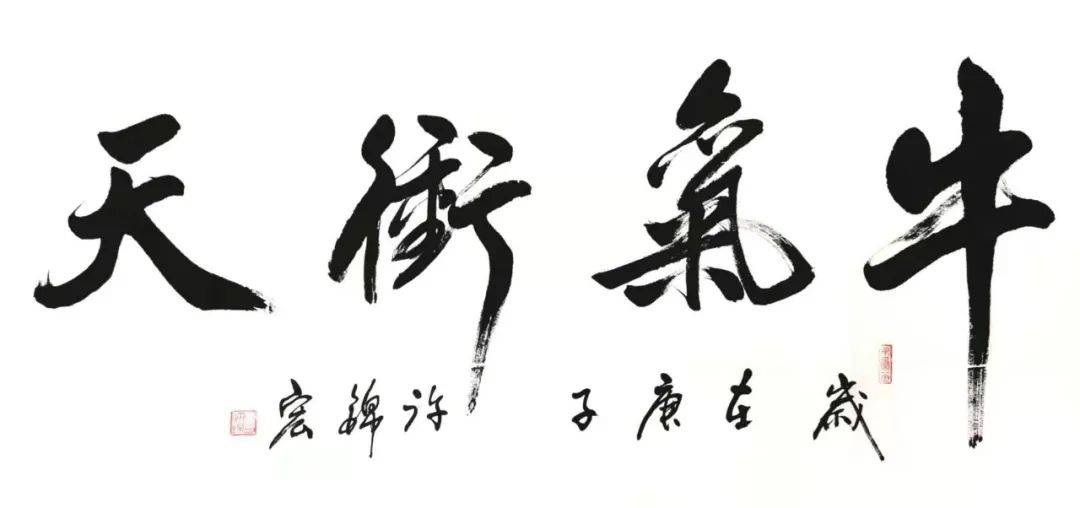 牛氣衝天
歲在庚子 许錦宏